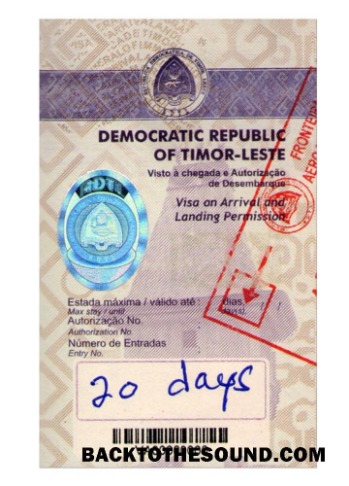 DEMOCRATIC REPUBLIC
OF TIMOR-LESTE
Visto à chegada e Autorização
de Desembarque
Visa on Arrival and
Landing Permission
FRONTEIRA
Estada máxima / válido até dias
Max stay / until days
Autorização No.
Authorization No.
Número de Entradas
Entry No.
20 days
BACKTOTHESOUND.COM